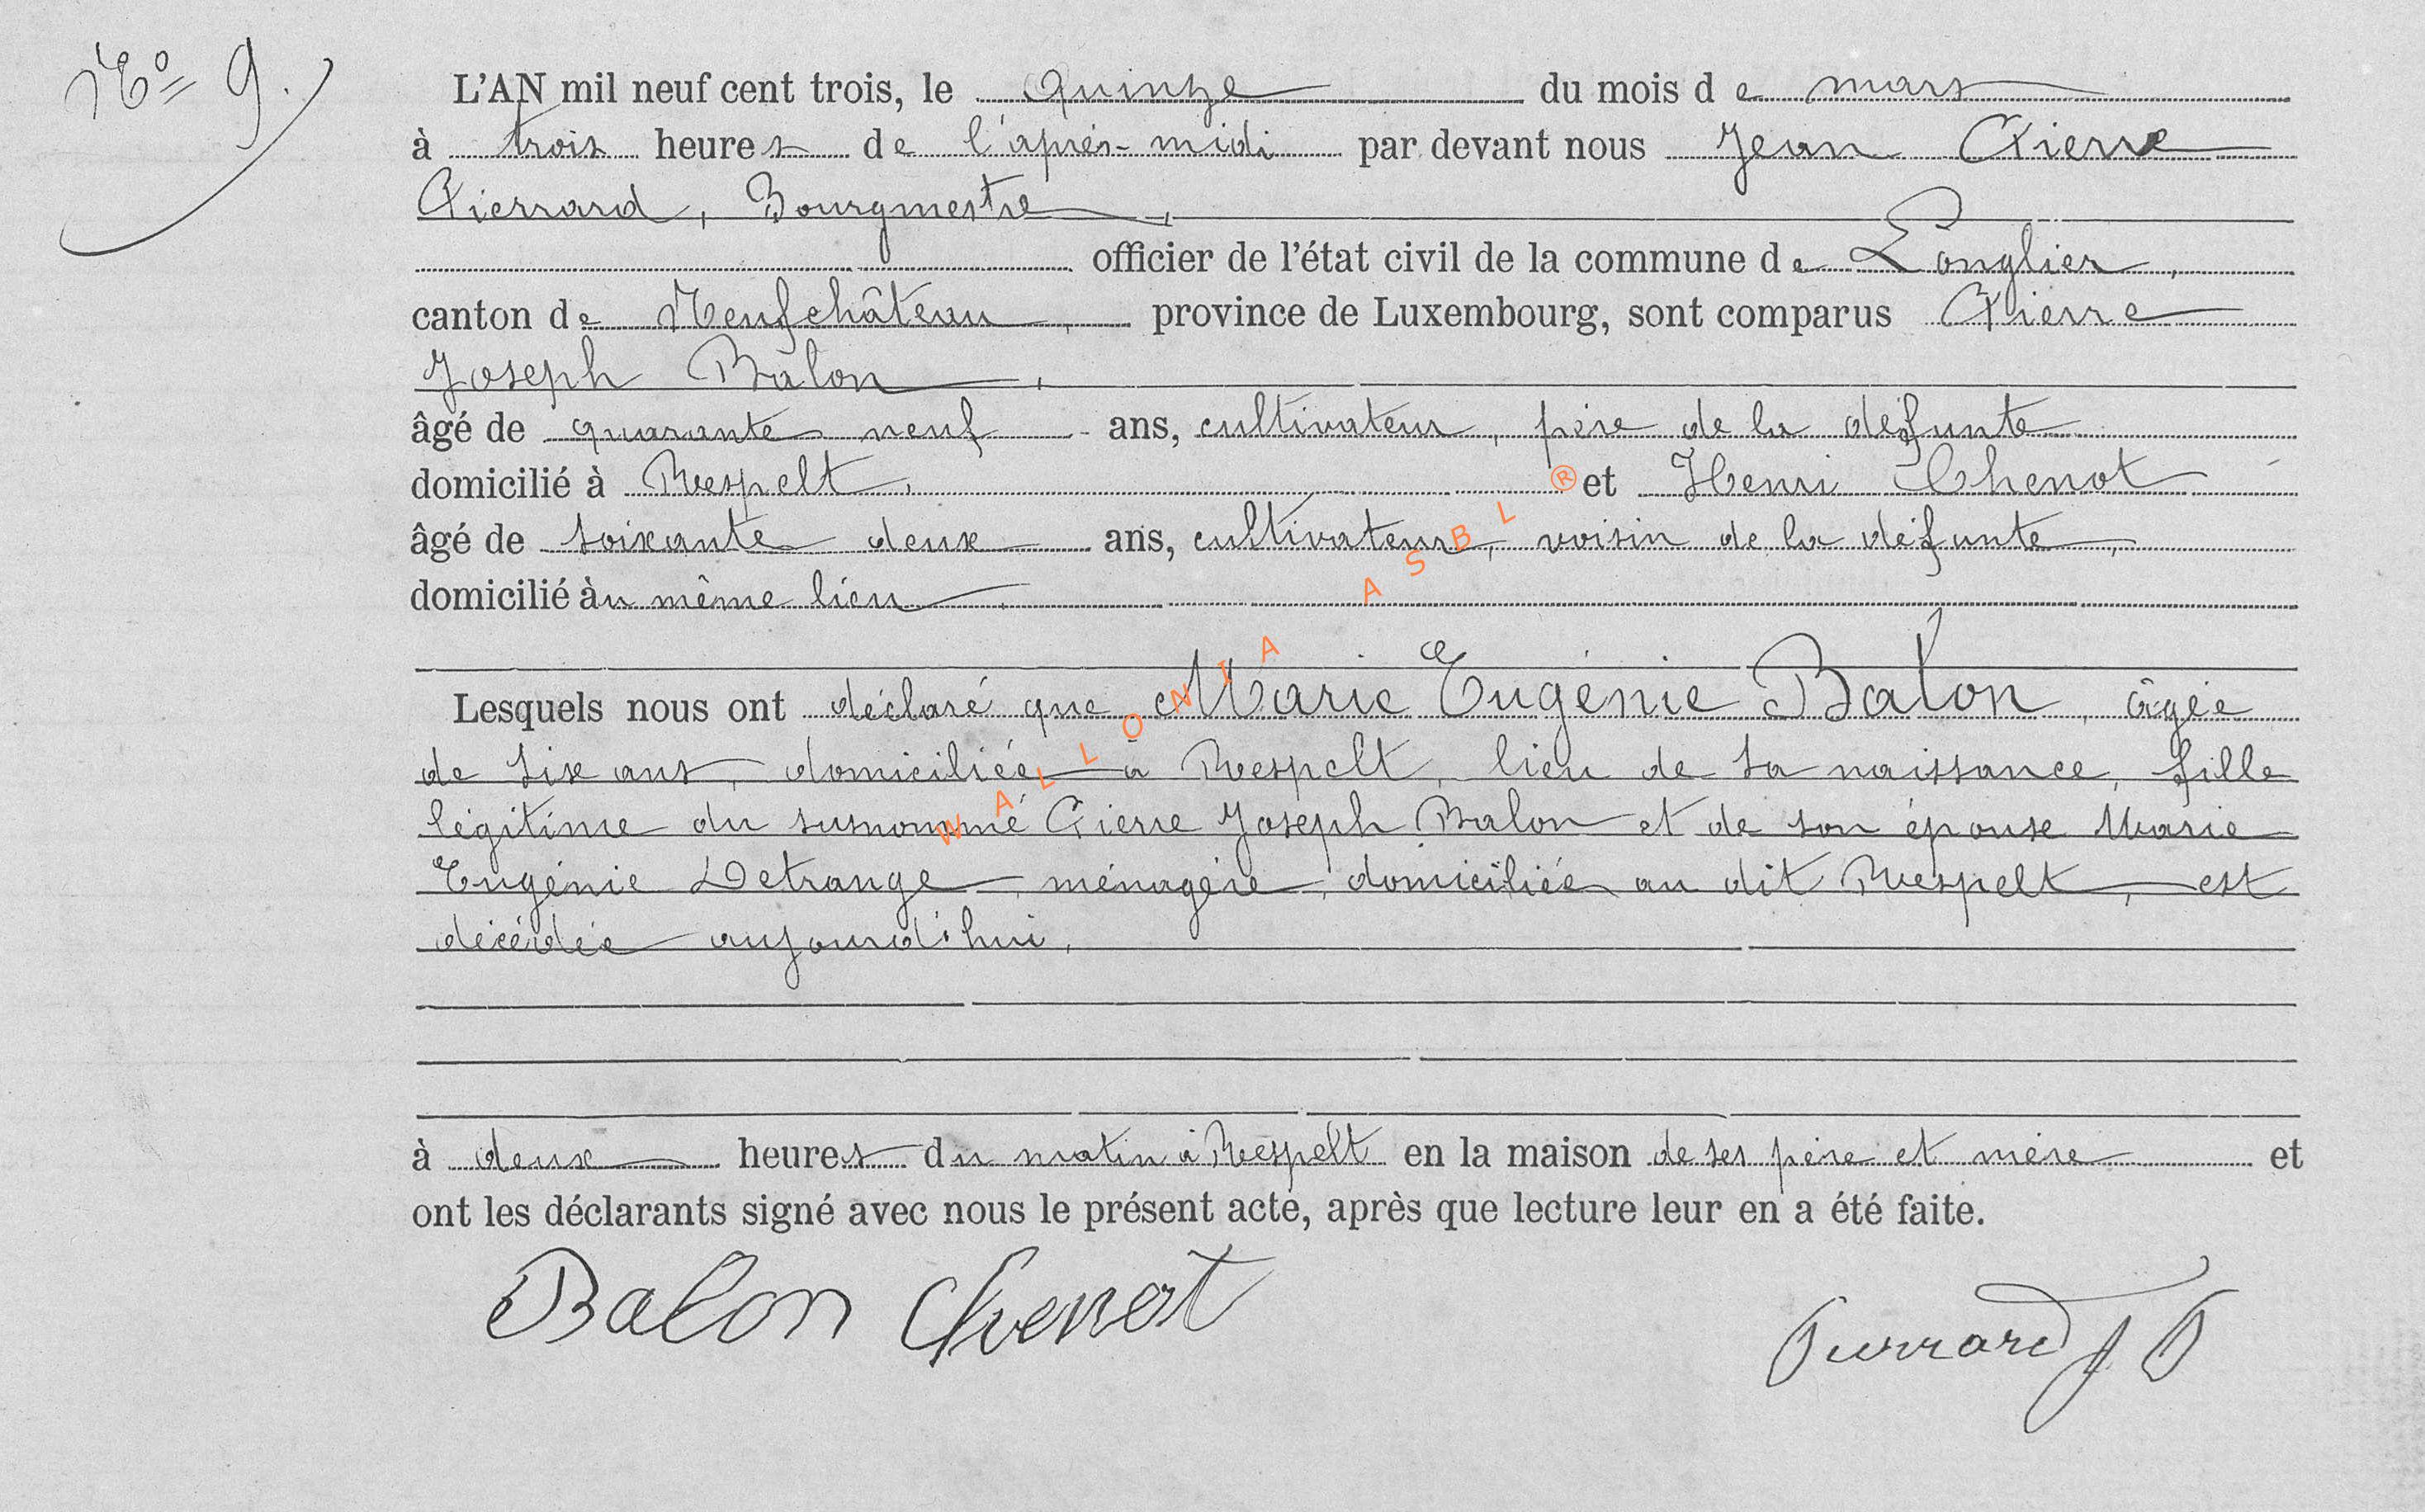 Nº 9.
L'AN mil neuf cent trois, le quinze du mois de mars
à trois heures de l'après-midi par devant nous Jean Pierre
Pierrard, Bourgmestre,
officier de l'état civil de la commune de Longlier,
canton de Neufchâteau, province de Luxembourg, sont comparus Pierre
Joseph Balon,
âgé de quarante neuf ans, cultivateur, père de la défunte
domicilié à Respelt, et Henri Chenot
âgé de soixante deux ans, cultivateur, voisin de la défunte,
domicilié au même lieu.
Lesquels nous ont déclaré que Marie Eugénie Balon, âgée
de six ans, domiciliée à Respelt, lieu de sa naissance, fille
légitime du susnommé Pierre Joseph Balon et de son épouse Marie
Eugénie Detrange, ménagère, domiciliée au dit Respelt, est
décédée aujourd'hui,
à deux heures du matin à Respelt en la maison de ses père et mère et
ont les déclarants signé avec nous le présent acte, après que lecture leur en a été faite.
Balon Chenot Pierrard J P
WALLONIA ASBL ®